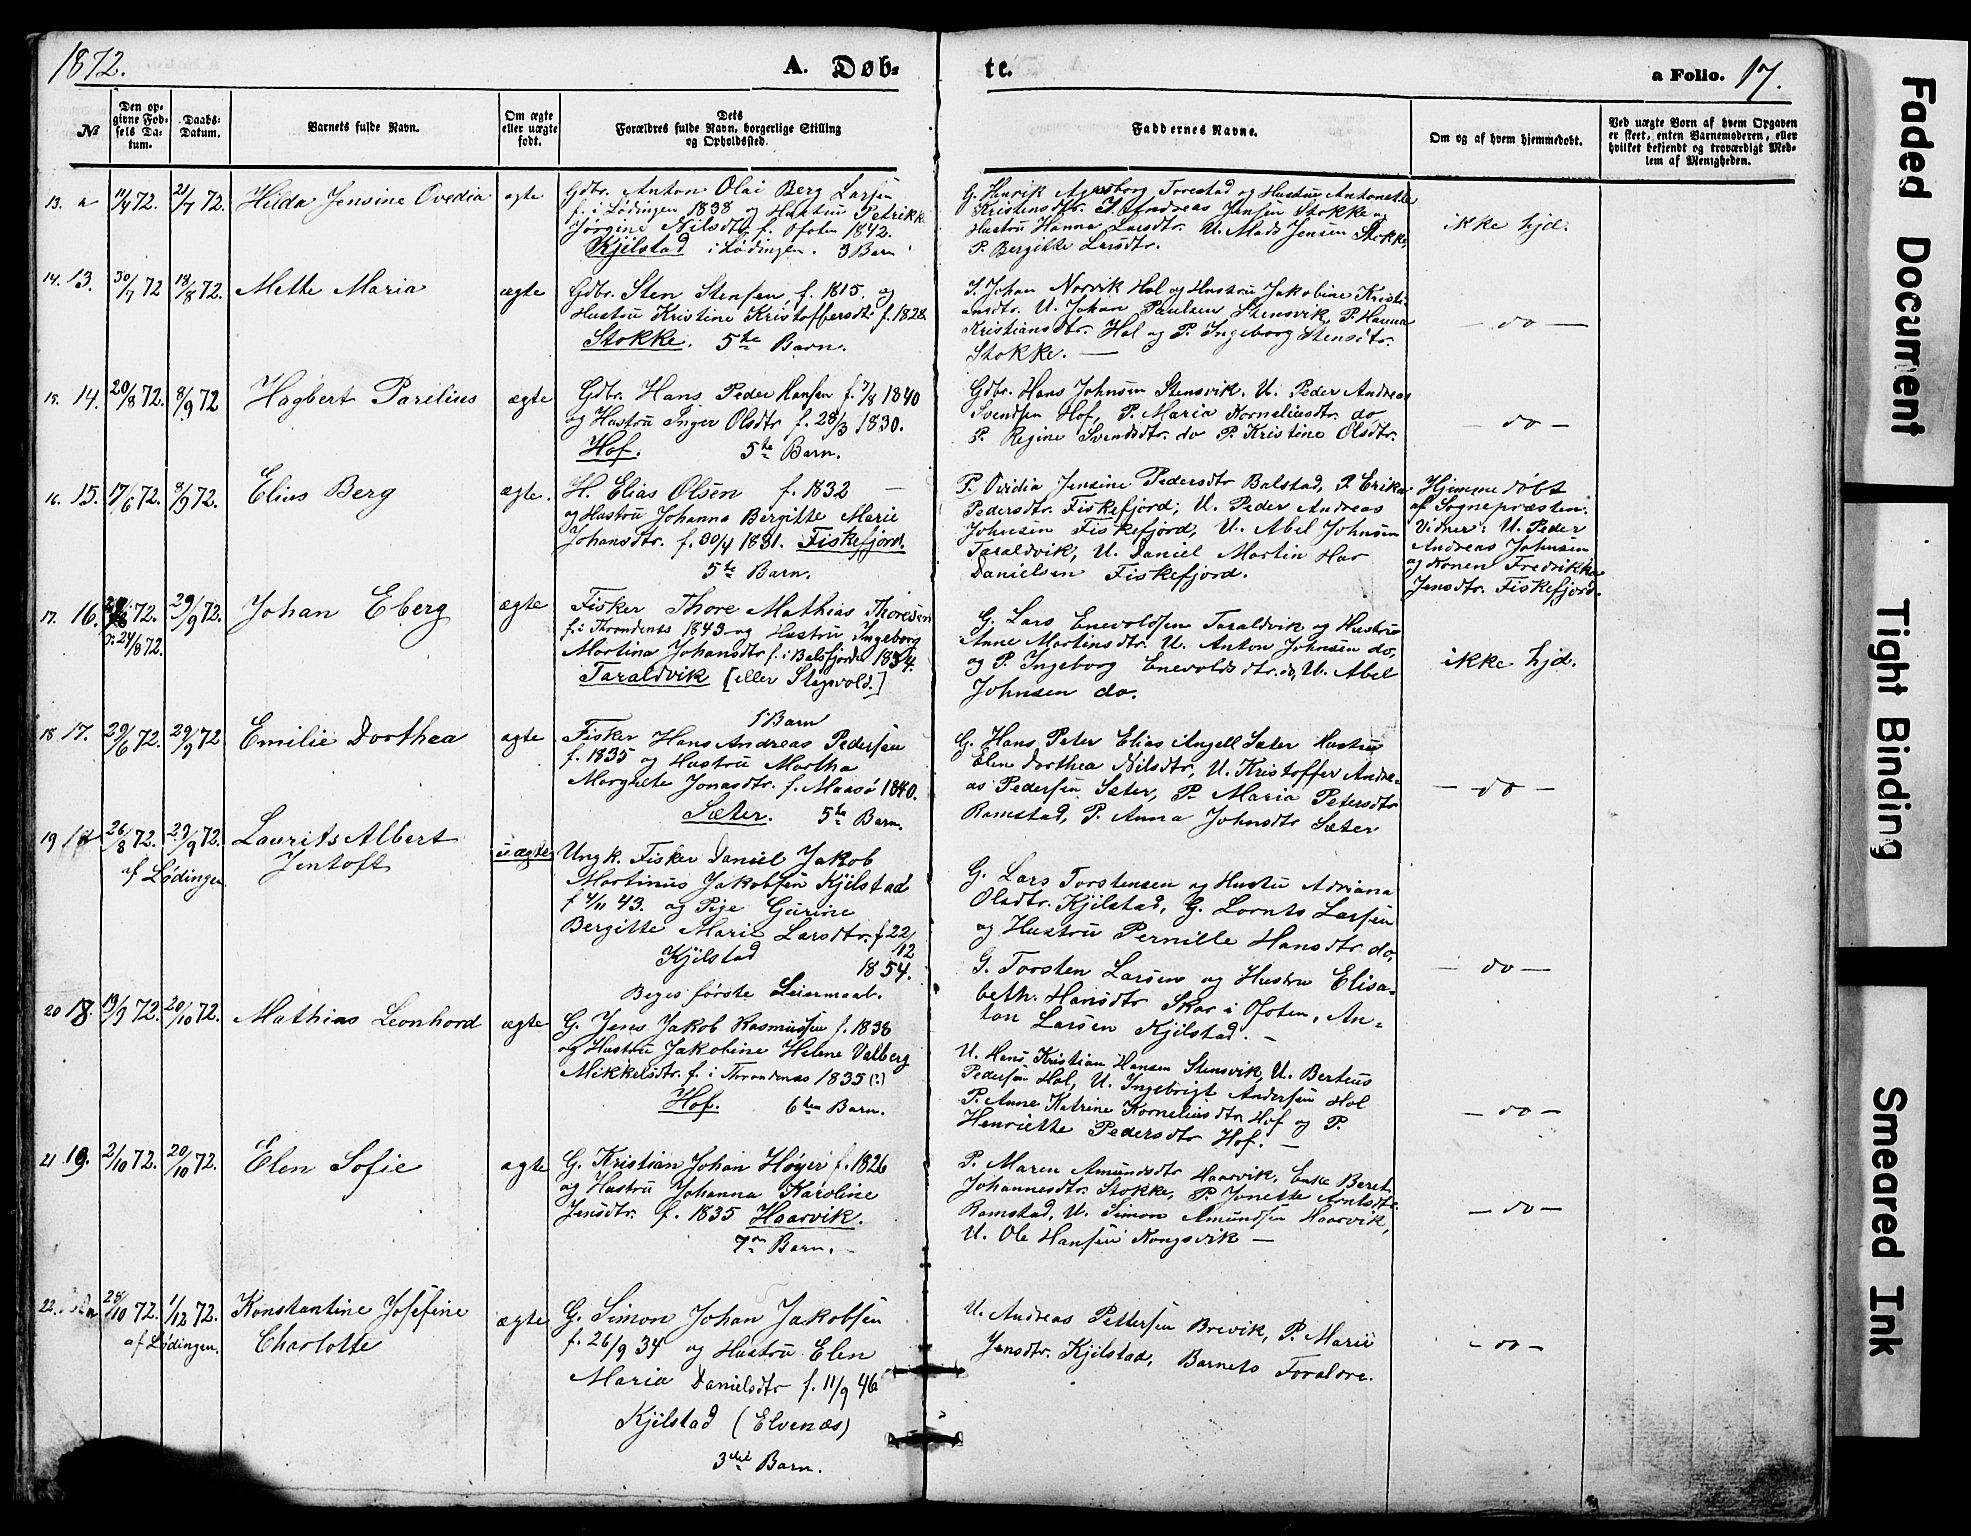 1872.
A. Døb-
te.
a Folio. 17.
No
Den op-
givne Fød-
sels Da-
tum.
Daabs-
Datum.
Barnets fulde Navn.
Om ægte
eller uægte
født.
Dets
Forældres fulde Navn, borgerlige Stilling
og Opholdssted.
Faddernes Navne.
Om og af hvem hjemmedøbt.
Ved uægte Børn af hvem Opgaven
er skeet, enten Barnemoderen, eller
hvilket bekjendt og troværdigt Med-
lem af Menigheden.
13. a 72. 21/7 72. Hilda Jensine Ovedia ægte
Gdbr. Anton Olai Berg Larsen
f. i Lødingen 1838 og Hustru Petrikke
Jørgine Nilsdtr. f. Ofoten 1842.
Kjilstad i Lødingen. 3 Barn
G. Henrik Torestad og Hustru Antonette
Kristensdtr. Andreas Jensen Stokke og
Hustru Hanna Larsdtr. U. Mads Jensen Stokke,
P. Bergitte Larsdtr.
ikke hjd.
14. 13. 30/7 72 18/8 72. Mette Maria ægte
Gdbr. Sten Stensen, f. 1815. og
Hustru Kristine Kristoffersdtr. f. 1828.
Stokke. 5te Barn.
Johan Norvik Hol og Hustru Jakobine Kristi-
ansdtr. U. Johan Paulsen Stensvik, P. Hanna
Kristiansdtr. Hol og P. Ingeborg Stensdtr.
Stokke. —
— do —
15. 14. 20/8 72. 8/9 72 Hagbert Parelius ægte
Gdbr. Hans Peder Hansen f. 7/8 1840
og Hustru Inger Olsdtr f. 28/3 1830.
Hof. 5te Barn.
Gdbr. Hans Johnsen Stensvik. U. Peder Andreas
Svendsen Hof, P. Maria Korneliusdtr. do
P. Regine Svendsdtr. do P. Kristine Olsdtr.
— do —
16. 15. 17/6 72. 8/9 72. Elius Berg ægte.
H. Elias Olsen f. 1832 —
og Hustru Johanna Bergitte Marie
Johansdtr. f. 30/4 1831. Fiskefjord.
5te Barn.
P. Ovidia Jensine Pedersdtr Balstad, P. Erika
Pedersdtr. Fiskefjord, U. Peder Andreas
Johnsen Fiskefjord, U. Abel Johnsen
Taraldvik, U. Daniel Martin Har
Danielsen Fiskefjord.
Hjemmedøbt
af Sognepræsten.
Vidner: U. Peder
Andreas Johnsen
og Konen Fredrikke
Jensdtr. Fiskefjord.
17. 16. 72. 29/9 72. Johan Eberg ægte
24/8 72.
Fisker Thore Mathias Thoresen
f. i Throndenes 1843 og Hustru Ingeborg
Martina Johansdtr f. i Balsfjorden 1854.
Taraldvik [eller Stegvold.]
1 Barn
G. Lars Enevoldsen Taraldvik og Hustru
Anne Martinsdtr. U. Anton Johnsen do,
og P. Ingeborg Enevoldsdtr. do, U. Abel
Johnsen do.
ikke hjd.
18 17. 29/6 72. 29/9 72 Emilie Dorthea ægte
Fisker Hans Andreas Pedersen
f. 1835 og Hustru Martha
Margrete Jonasdtr. f. Maasø 1840.
Sæter. 5te Barn.
G. Hans Peter Elias Angell Sæter Hustru
Elen Dorthea Nilsdtr, U. Kristoffer Andre-
as Pedersen Sæter, P. Maria Petersdtr
Ramstad, P. Anna Johnsdtr Sæter
— do —
19 26/8 72. 29/9 72. Laurits Albert uægte
af Lødingen Jentoft
Ungk. Fisker Daniel Jakob
Martinus Jakobsen Kjilstad
f 43. og Pige Gurine
Bergitte Marie Larsdtr. f 22/12
Kjilstad 1854.
Beges første Leiermaal.
G. Lars Torstensen og Hustru Adriana
Olsdtr. Kjilstad, G. Lornts Larsen
og Hustru Pernille Hansdtr do,
G. Torsten Larsen og Hustru Elisa-
beth. Hansdtr Skar i Ofoten, An-
ton Larsen Kjilstad. —
— do —
20 18. 19/9 72. 20/10 72. Mathias Leonhard ægte
G. Jens Jakob Rasmussen f. 1838
og Hustru Jakobine Helene Valberg
Mikkelsdtr. f. i Throndenes 1835 (?)
Hof. 6te Barn.
U. Hans Kristian Hansen Stensvik, U. Berteus
Pedersen Hol, U. Ingebrigt Andersen Hol
P. Anne Katrine Korneliusdtr Hof og P.
Henriette Pedersdtr Hof. —
— do —
21 19. 2/10 72. 20/10 72. Elen Sofie ægte
G. Kristian Johan Høyer f. 1826
og Hustru Johanna Karoline
Jensdtr. f. 1835 Haarvik.
7de Barn. —
P. Maren Amundsdtr Haarvik, Enke Beret
Johannesdtr. Stokke, P. Jonette Arntsdtr
Ramstad, U. Simon Amundsen Haarvik,
U. Ole Hansen Kongsvik —
— do —
22. 28/10 72. 1/12 72. Konstantine Josefine ægte
af Lødingen. Charlotte
G. Simon Johan Jakobsen
f. 26/9 34 og Hustru Elen
Maria Danielsdtr f. 11/9 46
Kjilstad (Elvenæs)
3die Barn.
U. Andreas Pettersen Brevik, P. Marie
Jensdtr. Kjilstad, Barnets Forældre.
— do —
Faded Document
Tight Binding
Smeared Ink